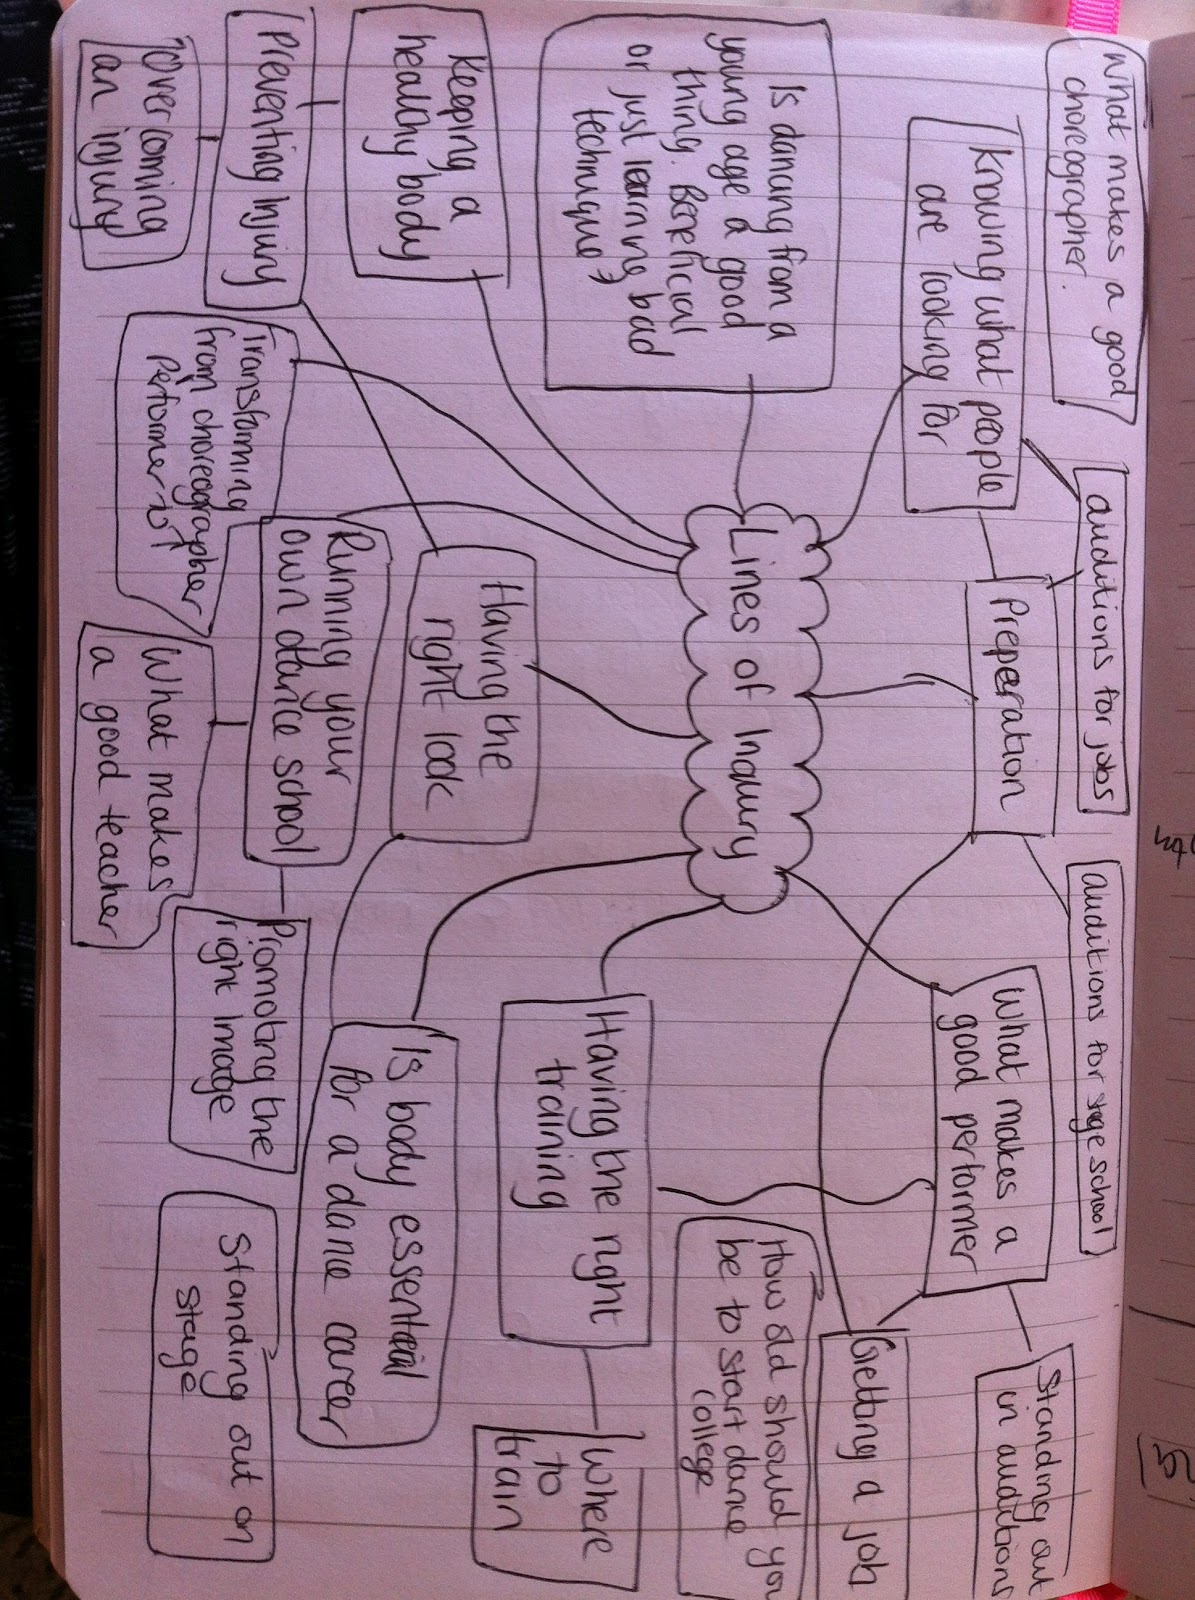 What makes a good
choreographer.
auditions for jobs
auditions for stage school
Knowing what people
are looking for
Preperation
What makes a
good performer
Standing out
in auditions
Is dancing from a
young age a good
thing. Beneficial
or just learning bad
technique?
Lines of Inquiry
Getting a job
How old should you
be to start dance
college
Keeping a
healthy body
Having the
right look
Having the right
training
Where
to
train
Preventing Injury
Running your
own dance school
Is body essential
for a dance career
Overcoming
an injury
Transforming
from choreographer
Performer
What makes
a good teacher
Promoting the
right Image
Standing out on
stage